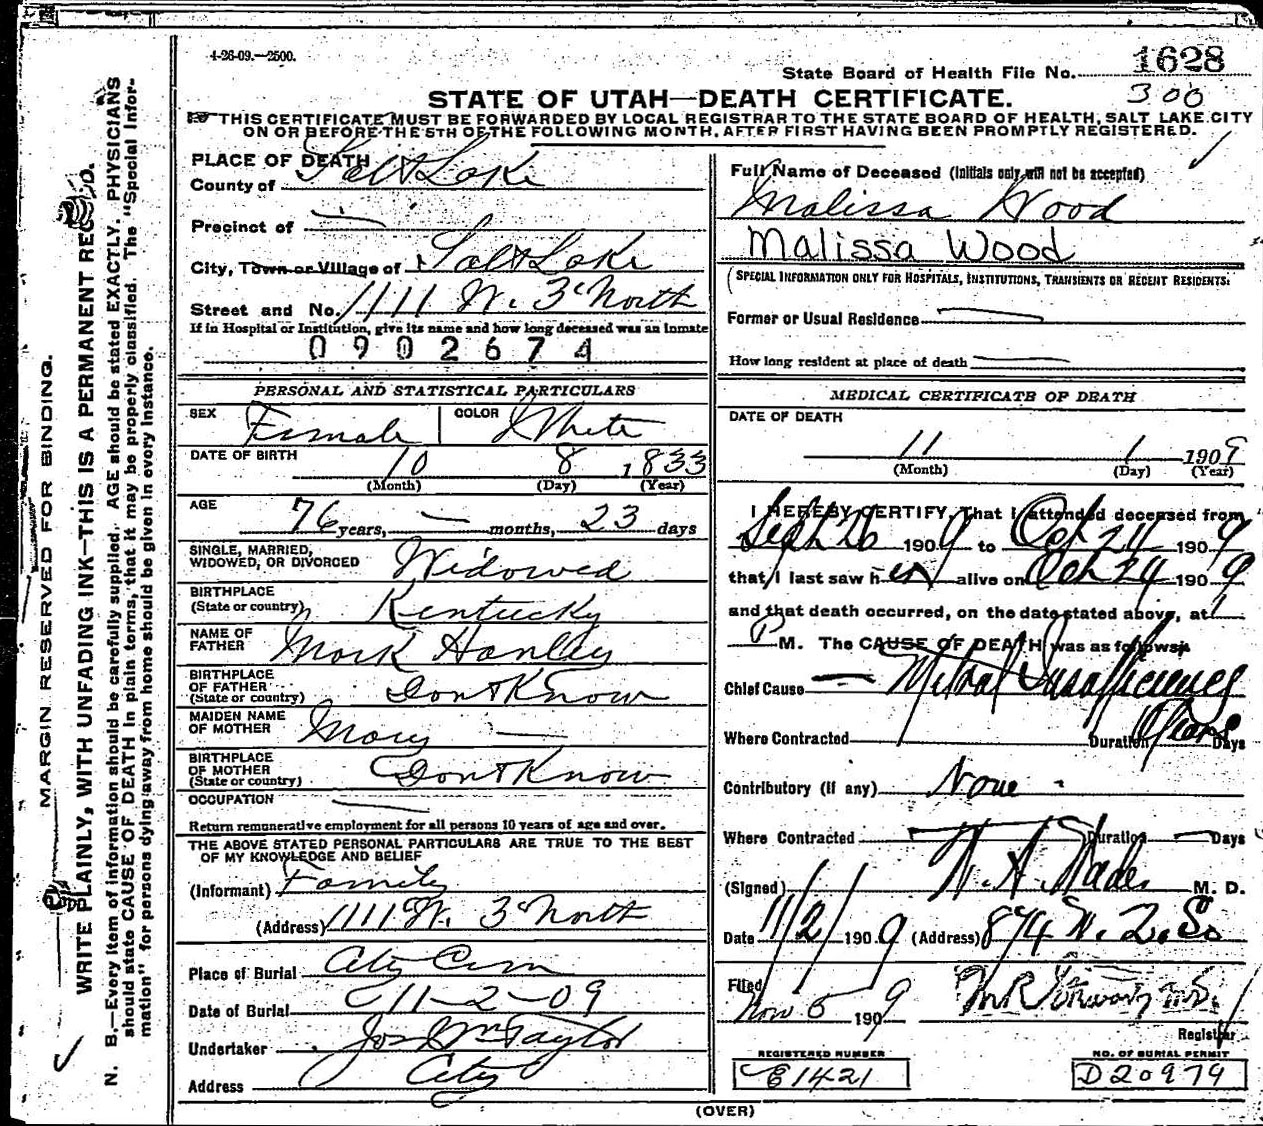 4-26-09.—2500.
State Board of Health File No. 1628
300
STATE OF UTAH—DEATH CERTIFICATE.
THIS CERTIFICATE MUST BE FORWARDED BY LOCAL REGISTRAR TO THE STATE BOARD OF HEALTH, SALT LAKE CITY
ON OR BEFORE THE 5TH OF THE FOLLOWING MONTH, AFTER FIRST HAVING BEEN PROMPTLY REGISTERED.
MARGIN RESERVED FOR BINDING.
WRITE PLAINLY, WITH UNFADING INK—THIS IS A PERMANENT RECORD.
N. B.—Every item of information should be carefully supplied. AGE should be stated EXACTLY. PHYSICIANS
should state CAUSE OF DEATH in plain terms, that it may be properly classified. The "Special Infor-
mation" for persons dying away from home should be given in every instance.
PLACE OF DEATH
County of Salt Lake
Precinct of —
City, Town or Village of Salt Lake
Street and No. 1111 W. 3d North
If in Hospital or Institution, give its name and how long deceased was an inmate
0902674
PERSONAL AND STATISTICAL PARTICULARS
SEX Female COLOR White
DATE OF BIRTH 10 8 1833
(Month) (Day) (Year)
AGE 76 years, — months, 23 days
SINGLE, MARRIED,
WIDOWED, OR DIVORCED Widowed
BIRTHPLACE
(State or country) Kentucky
NAME OF
FATHER Mark Hanley
BIRTHPLACE
OF FATHER
(State or country) Dont Know
MAIDEN NAME
OF MOTHER Mary —
BIRTHPLACE
OF MOTHER
(State or country) Dont Know
OCCUPATION —
Return remunerative employment for all persons 10 years of age and over.
THE ABOVE STATED PERSONAL PARTICULARS ARE TRUE TO THE BEST
OF MY KNOWLEDGE AND BELIEF
(Informant) Family
(Address) 1111 W. 3d North
Place of Burial City Cem
Date of Burial 11-2-09
Undertaker Jos Wm Taylor
Address City
Full Name of Deceased (Initials only will not be accepted)
Malissa Wood
Malissa Wood
(SPECIAL INFORMATION ONLY FOR HOSPITALS, INSTITUTIONS, TRANSIENTS OR RECENT RESIDENTS:
Former or Usual Residence —
How long resident at place of death —
MEDICAL CERTIFICATE OF DEATH
DATE OF DEATH
11 1 1909
(Month) (Day) (Year)
I HEREBY CERTIFY, That I attended deceased from
Sept 26 1909 to Oct 24 1909
that I last saw her alive on Oct 24 1909
and that death occurred, on the date stated above, at 1
P M. The CAUSE OF DEATH was as follows:
Chief Cause — Mitral Insufficiency
Where Contracted Duration Years Days
Contributory (if any) None
Where Contracted — Duration — Days
(Signed) M. D.
Date 11/2/ 1909 (Address) 874 W. 2. So
Filed
Nov 5 1909
Registrar
REGISTERED NUMBER
E1421
NO. OF BURIAL PERMIT
D20979
(OVER)